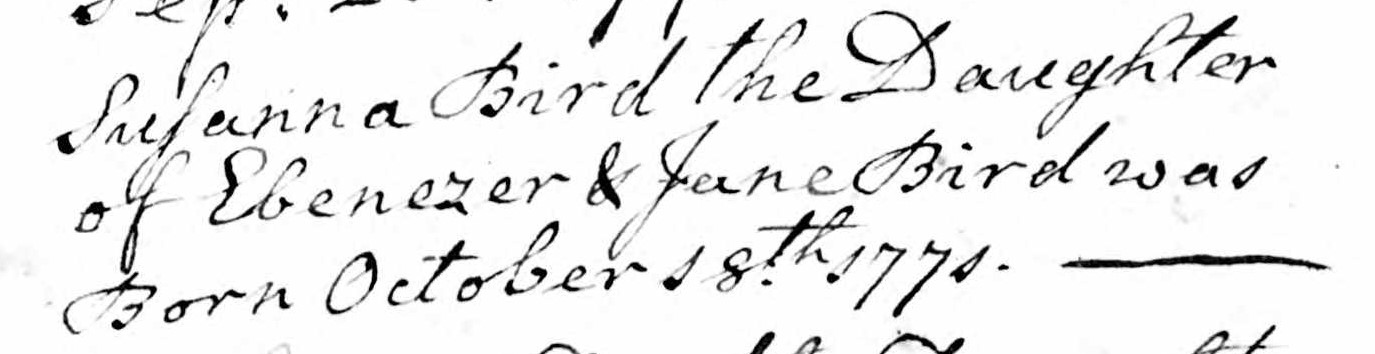 Sep.
Suſanna Bird the Daughter
of Ebenezer & Jane Bird was
Born October 18.th 1771. —